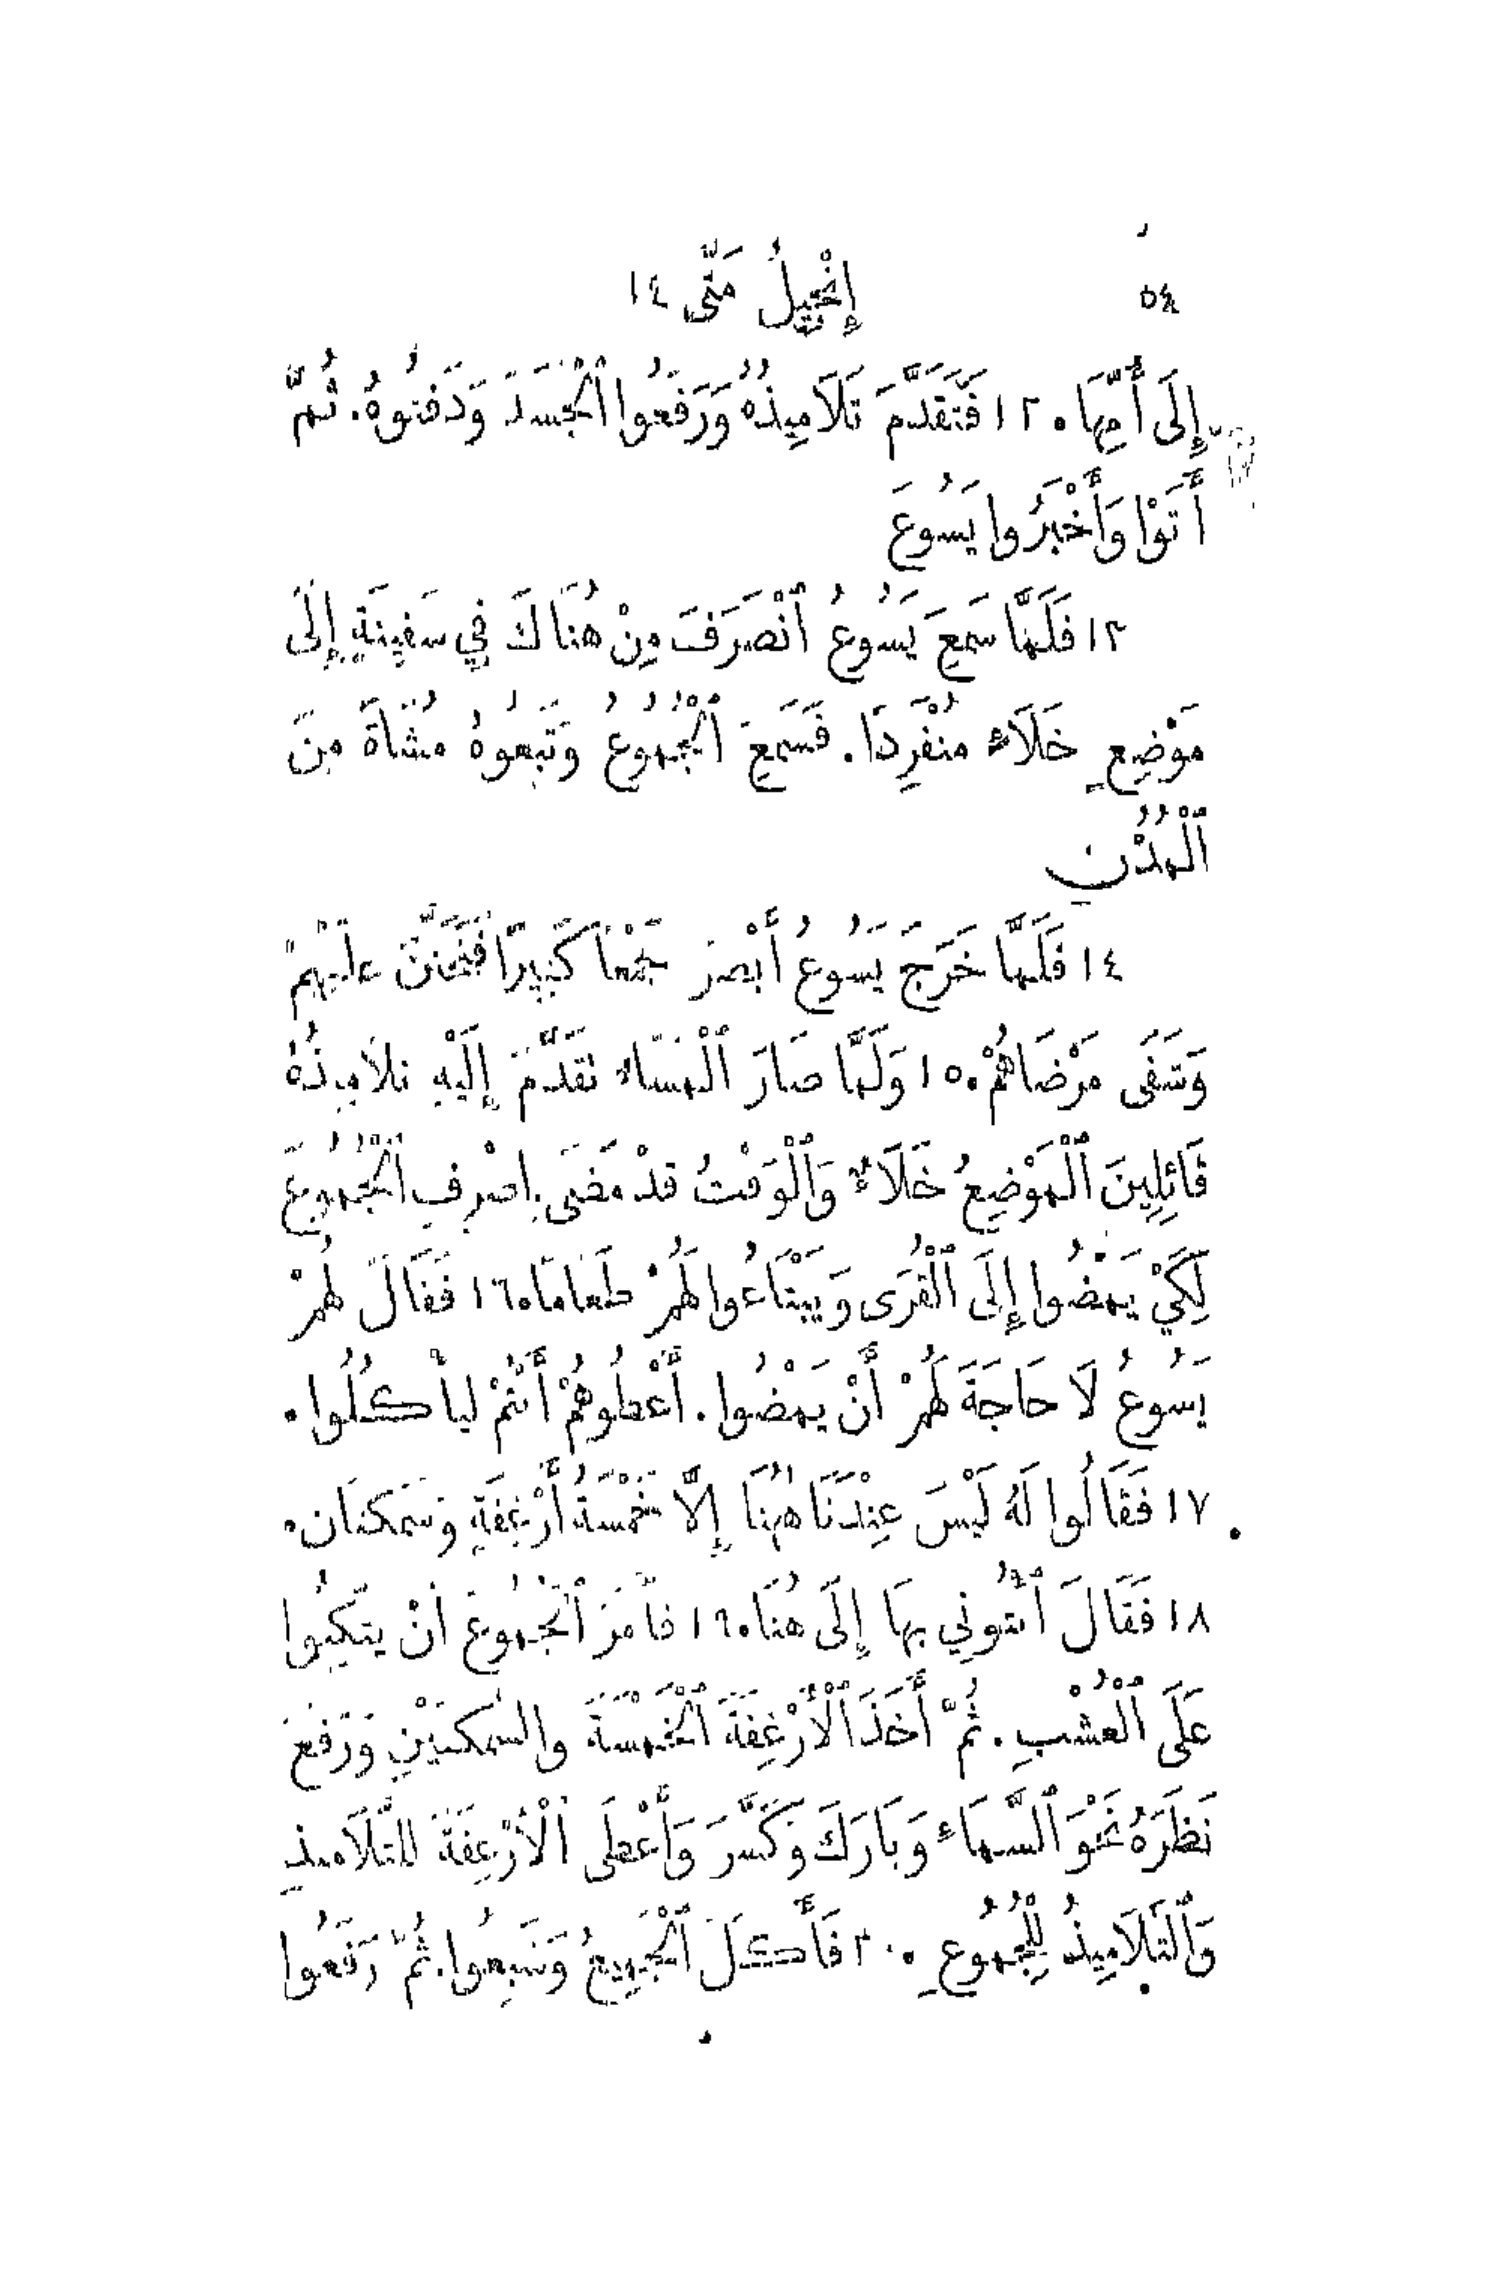 ٥٤ إِنْجِيلُ مَتَّى ١٤
إِلَى أُمِّهَا. ١٢ فَتَقَدَّمَ تَلَامِيذُهُ وَرَفَعُوا ٱلْجَسَدَ وَدَفَنُوهُ. ثُمَّ
أَتَوْا وَأَخْبَرُوا يَسُوعَ
١٣ فَلَمَّا سَمِعَ يَسُوعُ ٱنْصَرَفَ مِنْ هُنَاكَ فِي سَفِينَةٍ إِلَى
مَوْضِعٍ خَلَاءٍ مُنْفَرِدًا. فَسَمِعَ ٱلْجُمُوعُ وَتَبِعُوهُ مُشَاةً مِنَ
ٱلْمُدُنِ
١٤ فَلَمَّا خَرَجَ يَسُوعُ أَبْصَرَ جَمْعًا كَثِيرًا فَتَحَنَّنَ عَلَيْهِمْ
وَشَفَى مَرْضَاهُمْ. ١٥ وَلَمَّا صَارَ ٱلْمَسَاءُ تَقَدَّمَ إِلَيْهِ تَلَامِيذُهُ
قَائِلِينَ ٱلْمَوْضِعُ خَلَاءٌ وَٱلْوَقْتُ قَدْ مَضَى. اِصْرِفِ ٱلْجُمُوعَ
لِكَيْ يَمْضُوا إِلَى ٱلْقُرَى وَيَبْتَاعُوا لَهُمْ طَعَامًا. ١٦ فَقَالَ لَهُمْ
يَسُوعُ لَا حَاجَةَ لَهُمْ أَنْ يَمْضُوا. أَعْطُوهُمْ أَنْتُمْ لِيَأْكُلُوا.
١٧ فَقَالُوا لَهُ لَيْسَ عِنْدَنَا هٰهُنَا إِلَّا خَمْسَةُ أَرْغِفَةٍ وَسَمَكَتَانِ.
١٨ فَقَالَ ٱئْتُونِي بِهَا إِلَى هُنَا. ١٩ فَأَمَرَ ٱلْجُمُوعَ أَنْ يَتَّكِئُوا
عَلَى ٱلْعُشْبِ. ثُمَّ أَخَذَ ٱلْأَرْغِفَةَ ٱلْخَمْسَةَ وَالسَّمَكَتَيْنِ وَرَفَعَ
نَظَرَهُ نَحْوَ ٱلسَّمَاءِ وَبَارَكَ وَكَسَّرَ وَأَعْطَى ٱلْأَرْغِفَةَ لِلتَّلَامِيذِ
وَٱلتَّلَامِيذُ لِلْجُمُوعِ. ٢٠ فَأَكَلَ ٱلْجَمِيعُ وَشَبِعُوا. ثُمَّ رَفَعُوا